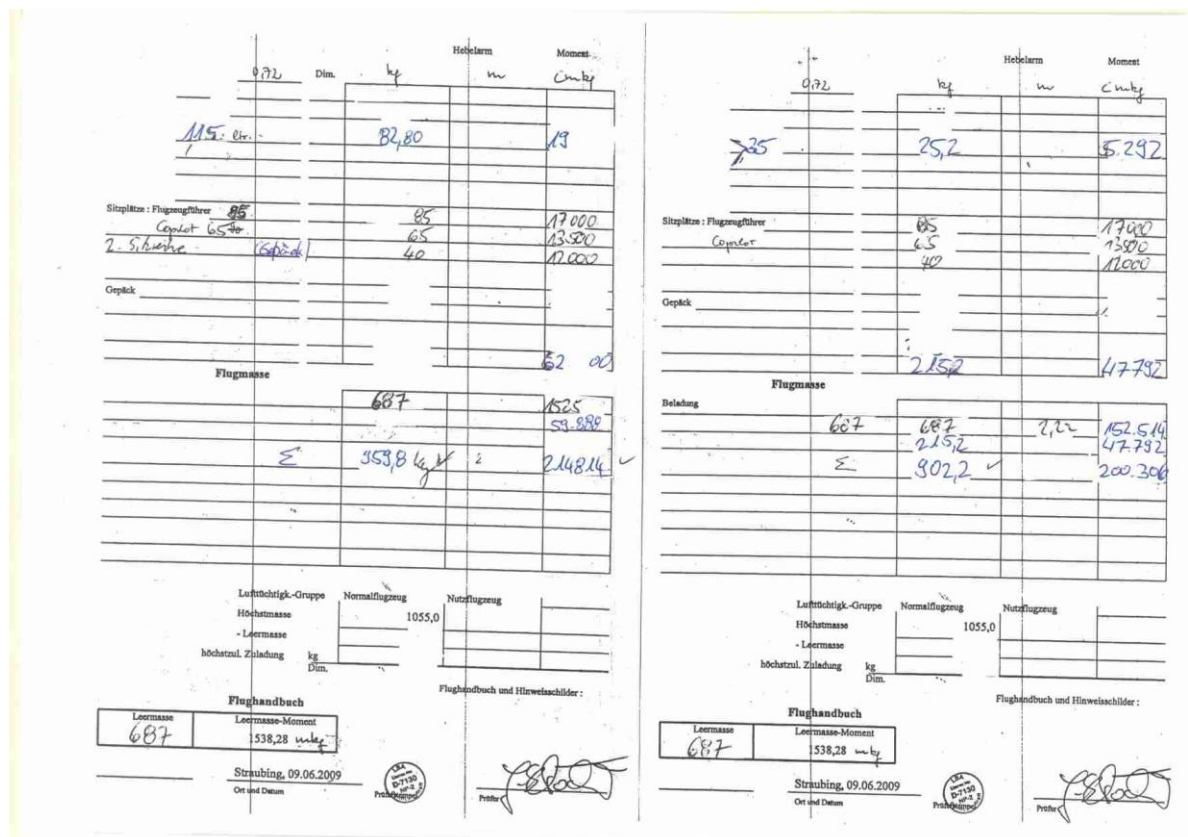 Hebelarm Moment
0,72 Dim. kg m cmkg
115 ltr. 82,80 19
Sitzplätze : Flugzeugführer 85 85 17000
Copilot 65 65 13500
2. Sitzreihe (Gepäck) 40 12000
Gepäck
62 00
Flugmasse
687 1525
59.888
Σ 959,8 kg 214814 ✓
Lufttüchtigk.-Gruppe Normalflugzeug Nutzflugzeug
Höchstmasse 1055,0
- Leermasse
höchstzul. Zuladung kg
Dim.
Flughandbuch und Hinweisschilder :
Flughandbuch
Leermasse Leermasse-Moment
687 1538,28 mkg
Straubing, 09.06.2009
Ort und Datum Prüfer
LBA
D-7130
NP-2
Hebelarm Moment
0,72 kg m cmkg
35 25,2 5.292
Sitzplätze : Flugzeugführer 85 17000
Copilot 65 13500
40 12000
Gepäck
215,2 47.792
Flugmasse
Beladung
687 687 2,22 152.514
215,2 47.792
Σ 902,2 ✓ 200.306
Lufttüchtigk.-Gruppe Normalflugzeug Nutzflugzeug
Höchstmasse 1055,0
- Leermasse
höchstzul. Zuladung kg
Dim.
Flughandbuch und Hinweisschilder :
Flughandbuch
Leermasse Leermasse-Moment
687 1538,28 mkg
Straubing, 09.06.2009
Ort und Datum Prüfer
LBA
D-7130
NP-2